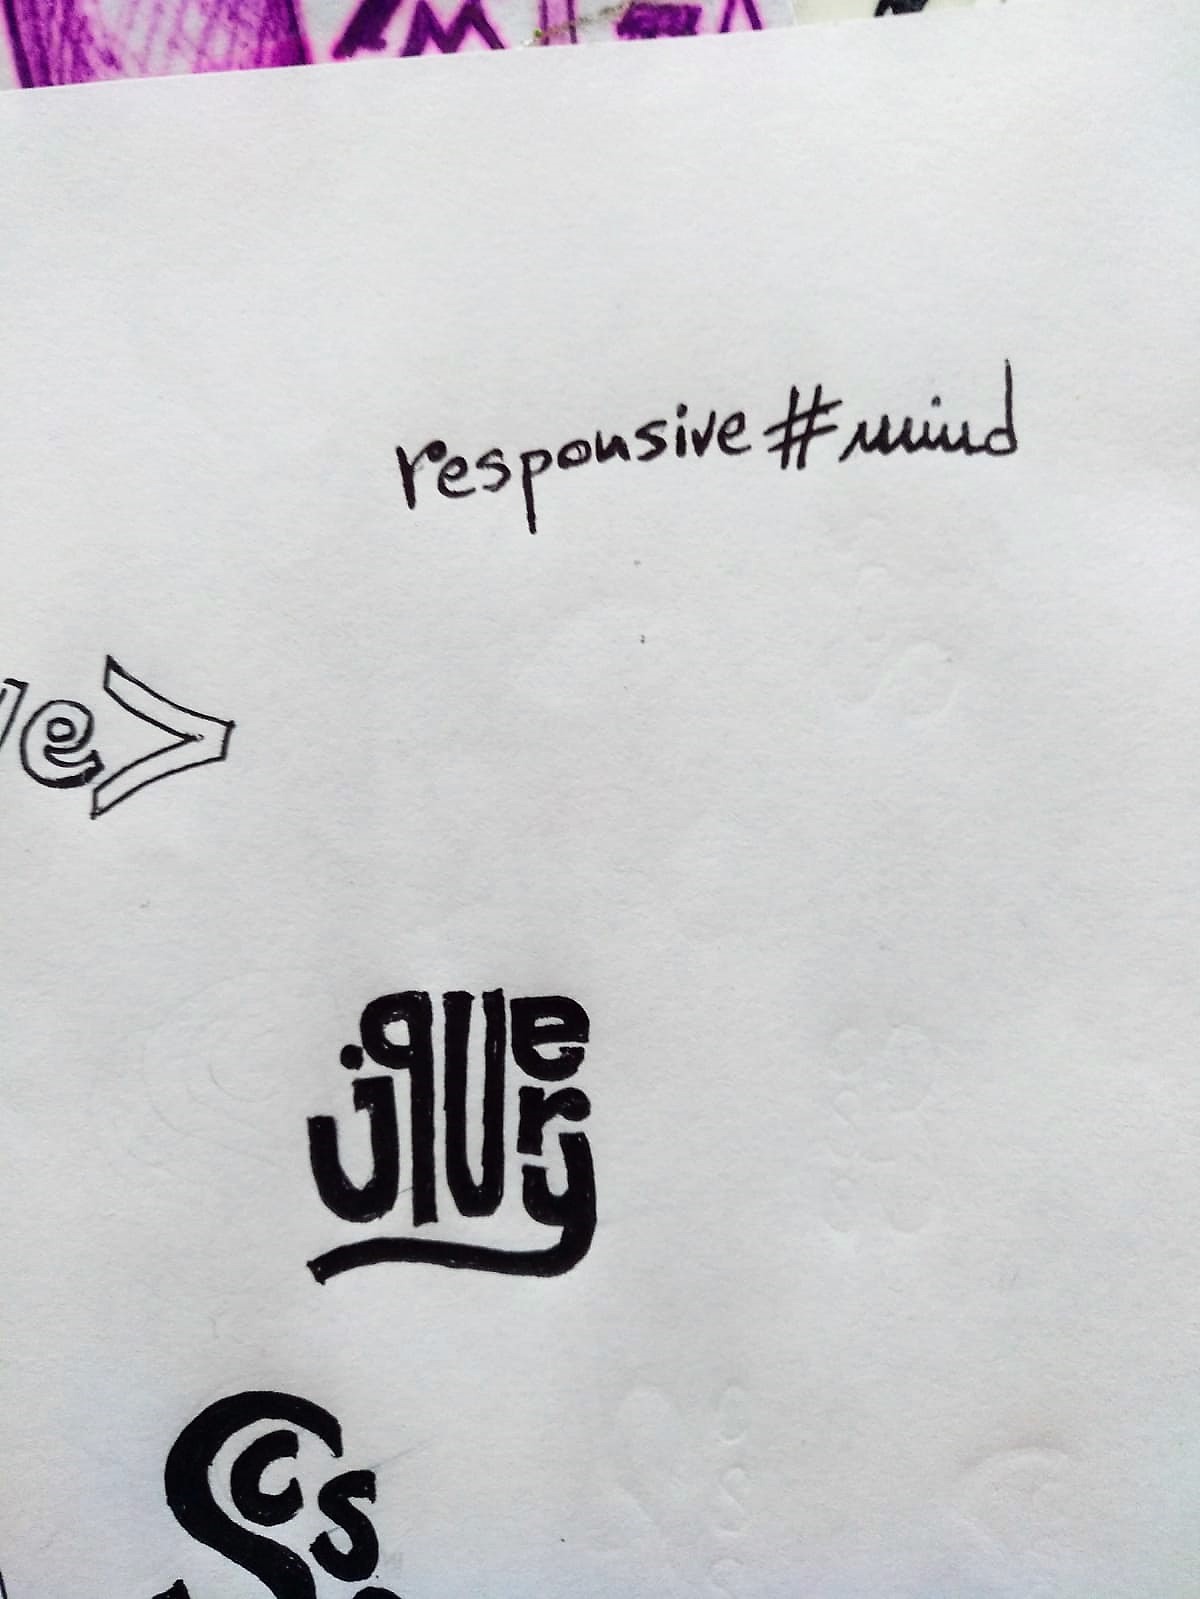 responsive#mind
e>
jquery
scss